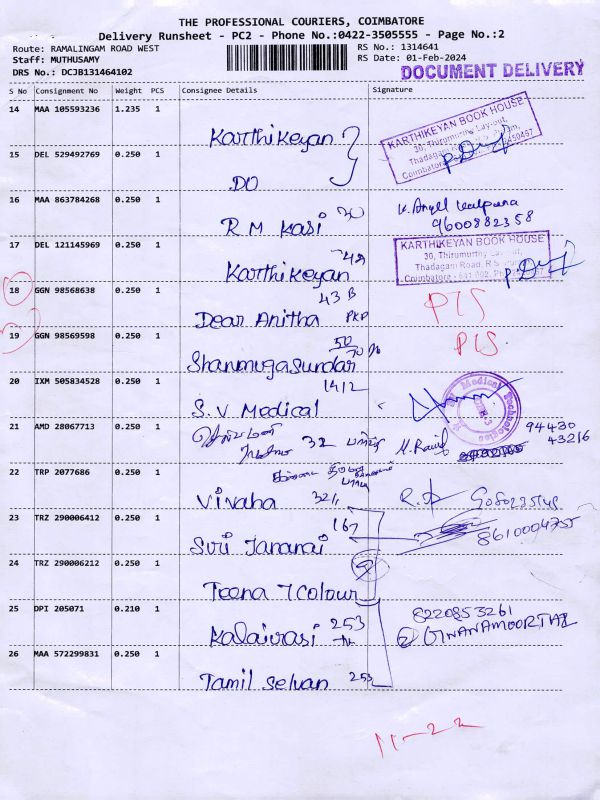 THE PROFESSIONAL COURIERS, COIMBATORE
Delivery Runsheet - PC2 - Phone No.:0422-3505555 - Page No.:2
Route: RAMALINGAM ROAD WEST
RS No.: 1314641
Staff: MUTHUSAMY
RS Date: 01-Feb-2024
DRS No.: DCJB131464102
DOCUMENT DELIVERY
S No Consignment No Weight PCS Consignee Details Signature
14 MAA 105593236 1.235 1
Karthikeyan
KARTHIKEYAN BOOK HOUSE
30, Thirumurthy Lay-out,
Thadagam
Coimbatore
15 DEL 529492769 0.250 1
DO
16 MAA 863784268 0.250 1
R M Kasi 30
9600882358
17 DEL 121145969 0.250 1
Karthikeyan
KARTHIKEYAN BOOK HOUSE
30, Thirumurthy Lay-out,
Thadagam Road, R.S.
Coimbatore - 641 002.
18 GGN 98568638 0.250 1
43 B
Dear Anitha PKP
19 GGN 98569598 0.250 1
50
Shanmugasundar
20 IXM 505834528 0.250 1
14/2
S.V Medical
21 AMD 28067713 0.250 1
32
94430
43216
22 TRP 2077686 0.250 1
Vivaha
23 TRZ 290006412 0.250 1
167
Suri Jananai
8610004755
24 TRZ 290006212 0.250 1
Teena 7 Colour
25 DPI 205071 0.210 1
Kalaivasi 253
8220853261
26 MAA 572299831 0.250 1
Tamil Selvan 253
11-22